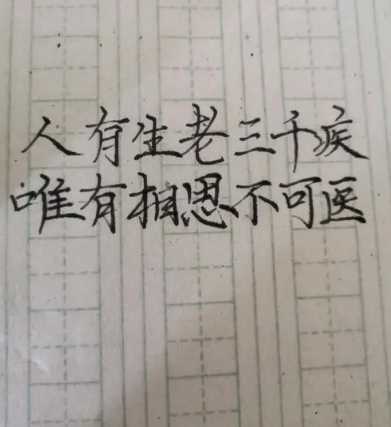 人有生老三千疾
唯有相思不可医